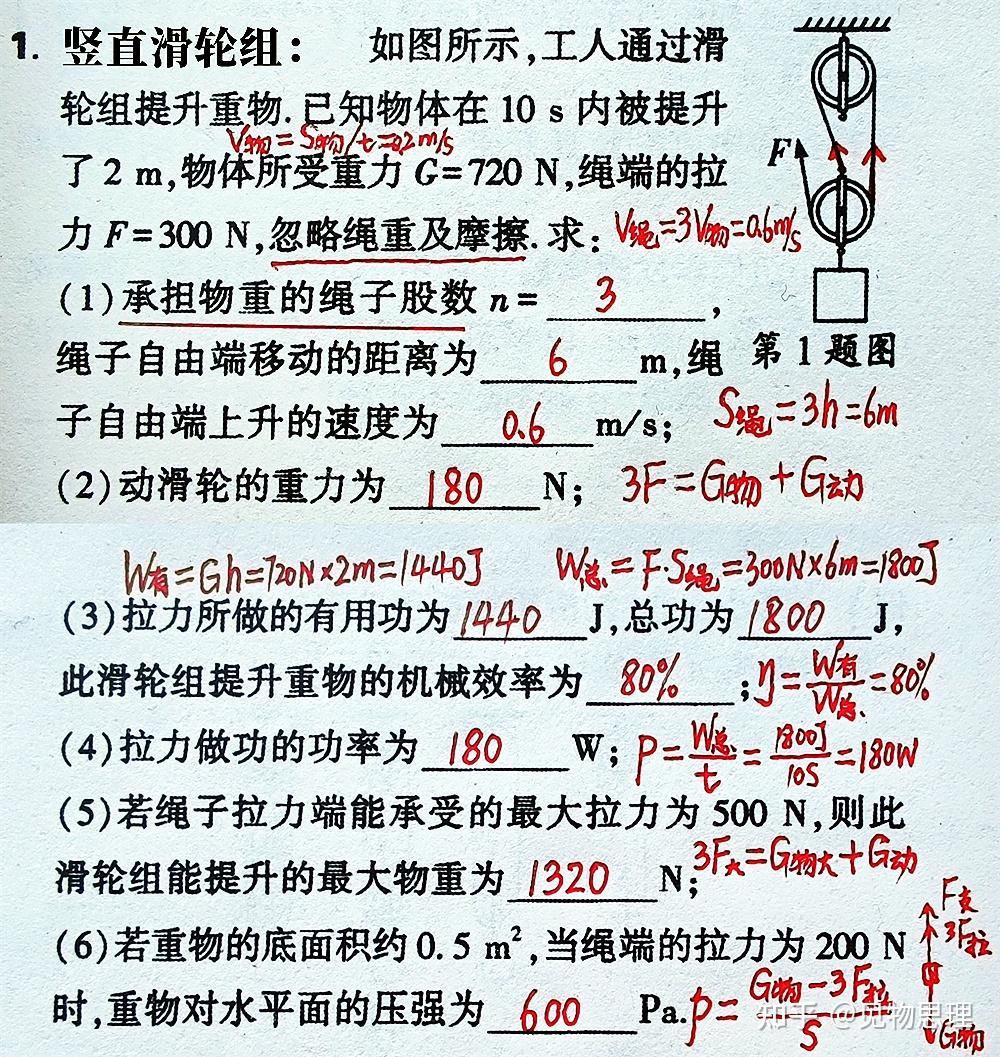 1. 竖直滑轮组： 如图所示,工人通过滑
轮组提升重物.已知物体在 10 s 内被提升
V物=S物/t=0.2m/s
了 2 m,物体所受重力 G=720 N,绳端的拉
F
力 F=300 N,忽略绳重及摩擦.求：
V绳=3V物=0.6m/s
(1)承担物重的绳子股数 n= 3 ,
绳子自由端移动的距离为 6 m,绳
第 1 题图
子自由端上升的速度为 0.6 m/s;
S绳=3h=6m
(2)动滑轮的重力为 180 N;
3F=G物+G动
W有=Gh=720N×2m=1440J
W总=F·S绳=300N×6m=1800J
(3)拉力所做的有用功为 1440 J,总功为 1800 J,
此滑轮组提升重物的机械效率为 80% ;
η=W有/W总=80%
(4)拉力做功的功率为 180 W;
P=W总/t=1800J/10S=180W
(5)若绳子拉力端能承受的最大拉力为 500 N,则此
3F大=G物大+G动
滑轮组能提升的最大物重为 1320 N;
F支
3F拉
(6)若重物的底面积约 0.5 m²,当绳端的拉力为 200 N
时,重物对水平面的压强为 600 Pa.
p=G物-3F拉/S
G物
知乎 @觉物思理